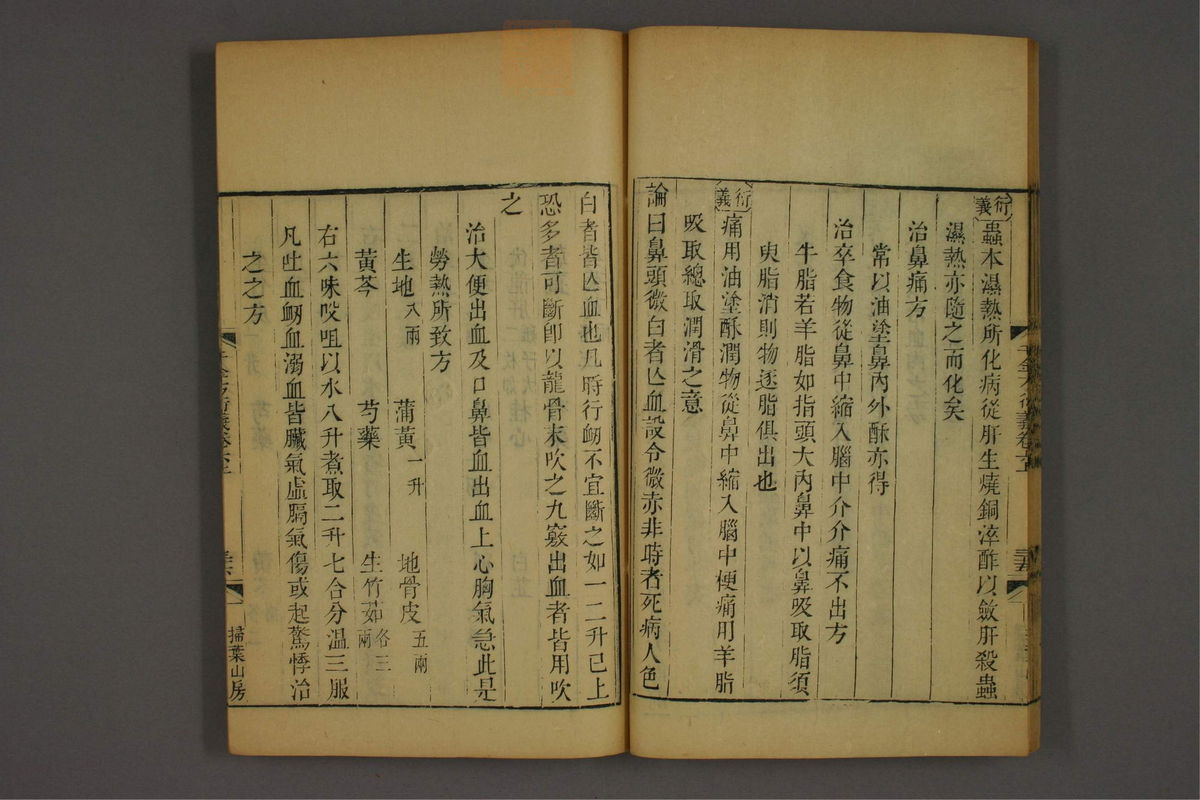 衍義蟲本濕熱所化病從肝生燒銅淬酢以斂肝殺蟲
濕熱亦隨之而化矣
治鼻痛方
常以油塗鼻內外酥亦得
治卒食物從鼻中縮入腦中介介痛不出方
牛脂若羊脂如指頭大內鼻中以鼻吸取脂須
臾脂消則物逐脂俱出也
衍義痛用油塗酥潤物從鼻中縮入腦中梗痛用羊脂
吸取總取潤滑之意
論曰鼻頭微白者亾血設令微赤非時者死病人色
白者皆亾血也凡時行衂不宜斷之如一二升已上
恐多者可斷卽以龍骨末吹之九竅出血者皆用吹
之
治大便出血及口鼻皆血出血上心胸氣急此是
勞熱所致方
生地八兩 蒲黃一升 地骨皮五兩
黃芩 芍藥 生竹茹各三兩
右六味㕮咀以水八升煮取二升七合分溫三服
凡吐血衂血溺血皆臟氣虛膈氣傷或起驚悸治
之之方
掃葉山房